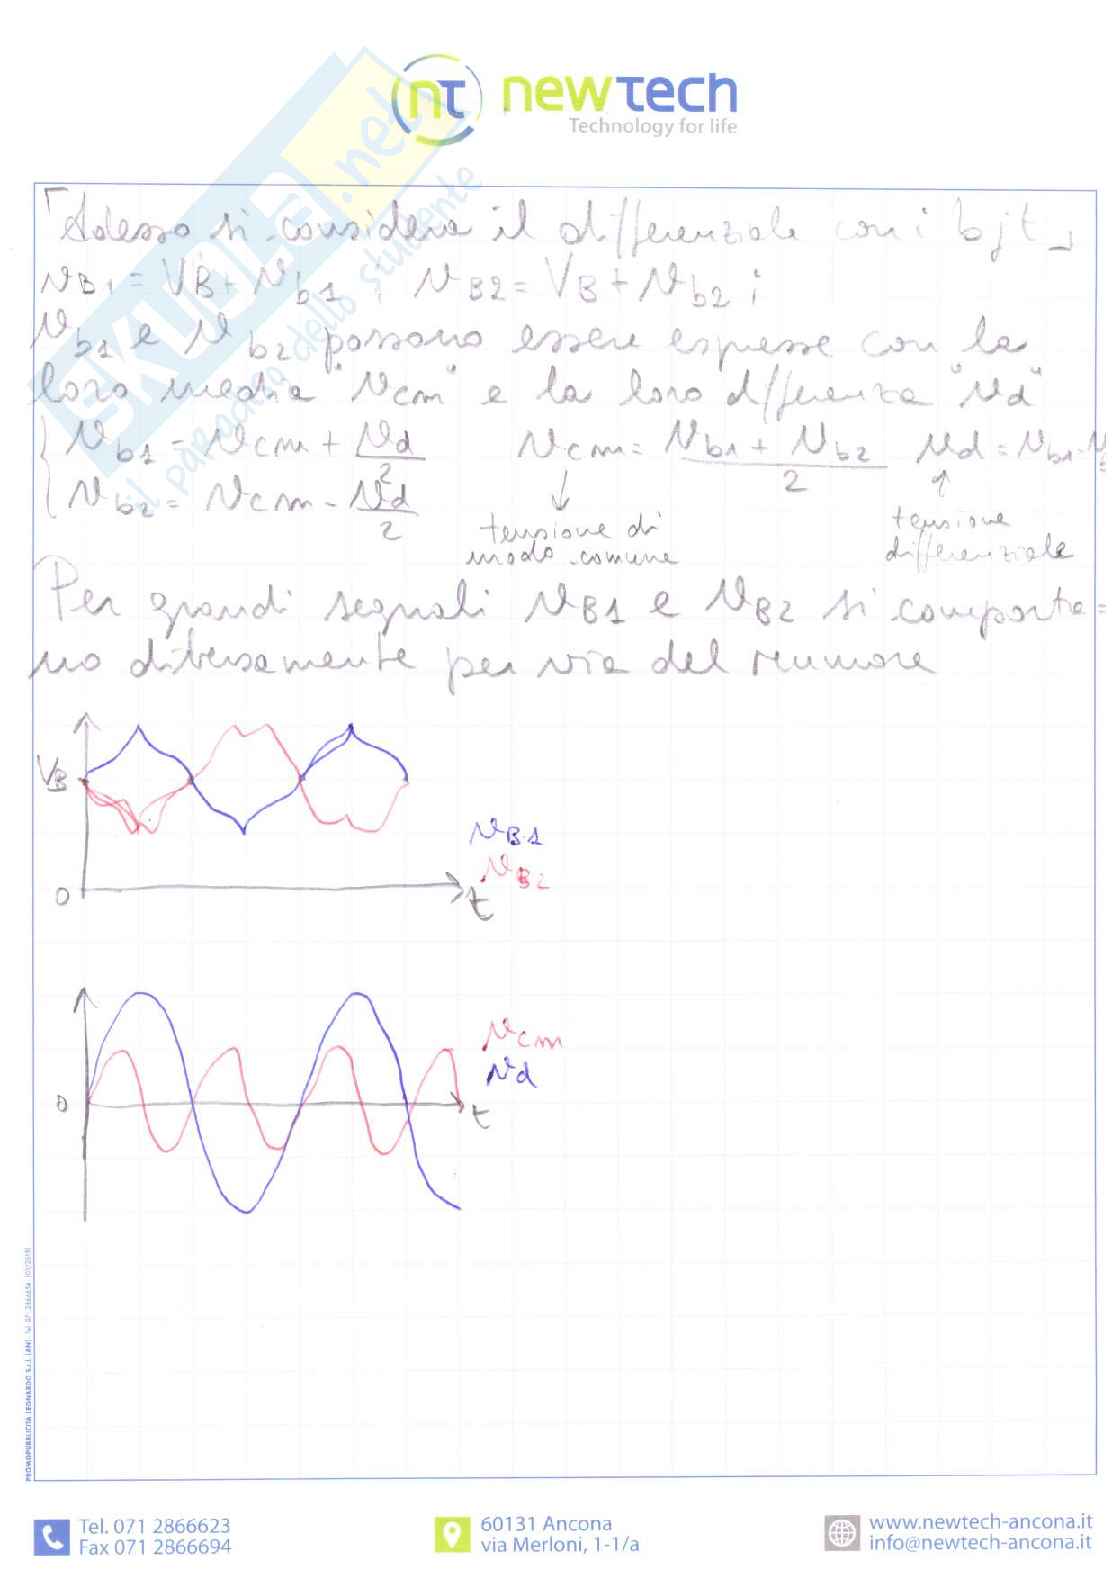 nt newtech
Technology for life
SKUOLA.net
il paradiso dello studente
⌈Adesso si considera il differenziale con i bjt⌋
vB1 = VB + vb1 ; vB2 = VB + vb2 ;
vb1 e vb2 possono essere espresse con la
loro media "vcm" e la loro differenza "vd"
{ vb1 = vcm + vd/2   vcm = (vb1 + vb2)/2   vd = vb1 -
{ vb2 = vcm - vd/2
tensione di modo comune
tensione differenziale
Per grandi segnali vB1 e vB2 si comporta=
no diversamente per via del rumore
VB
vB1
vB2
0
t
vcm
vd
0
t
Tel. 071 2866623
Fax 071 2866694
60131 Ancona
via Merloni, 1-1/a
www.newtech-ancona.it
info@newtech-ancona.it